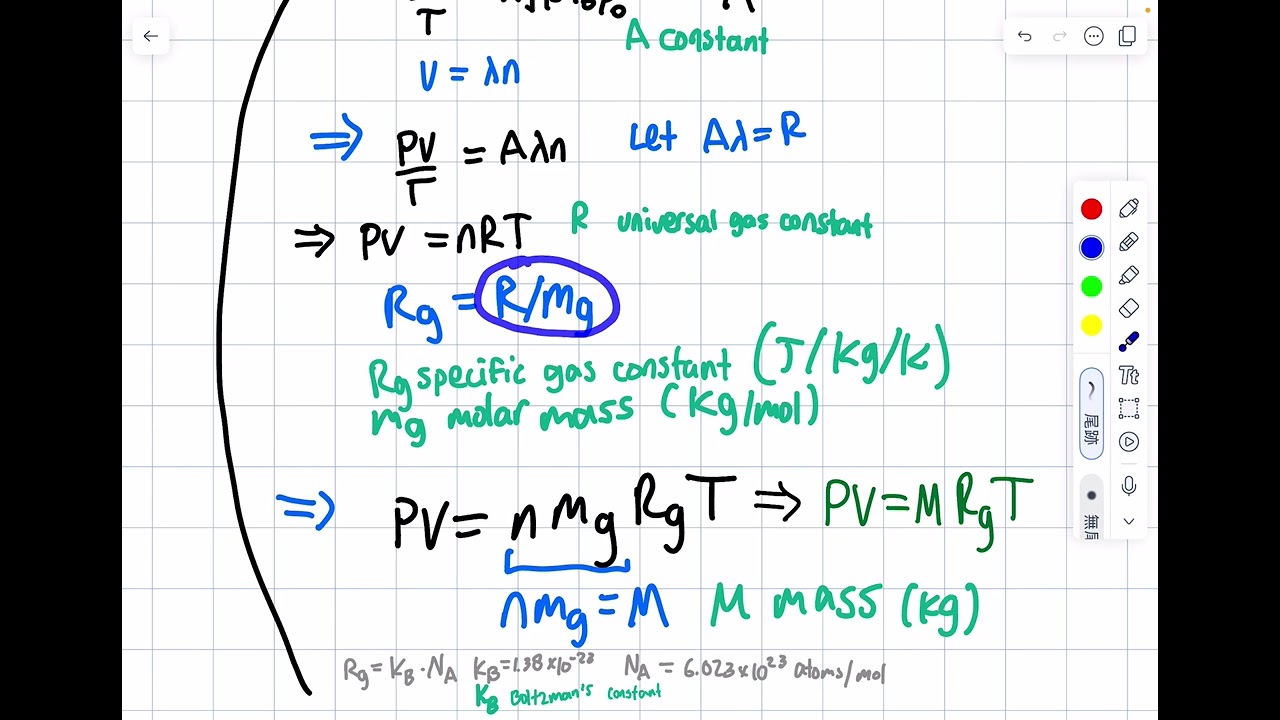 T
A constant
V = λn
⇒ PV/T = Aλn Let Aλ=R
⇒ PV = nRT R universal gas constant
Rg = R/mg
Rg specific gas constant (J/kg/k)
mg molar mass (kg/mol)
⇒ PV = n mg Rg T ⇒ PV = M Rg T
nmg = M M mass (kg)
Rg = KB·NA KB=1.38×10⁻²³ NA = 6.023×10²³ atoms/mol
KB Boltzman's constant
Tt
尾跡